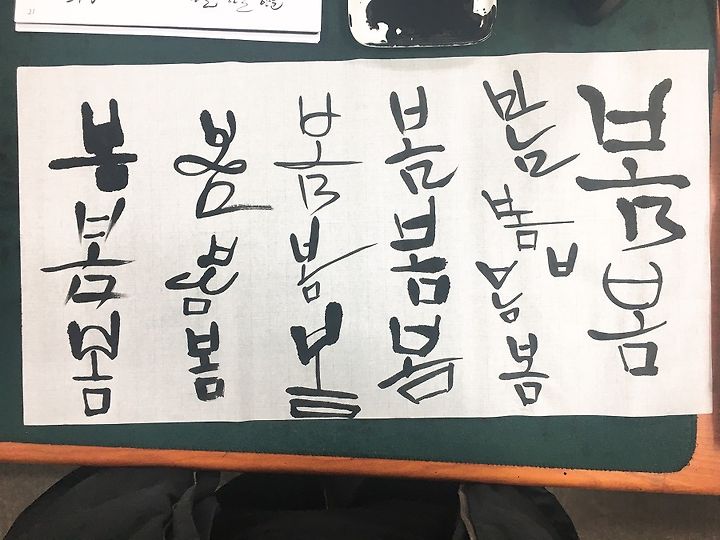 봄 봄 봄
봄 봄 봄
봄 봄 봄
봄 봄 봄
봄 봄 봄 봄
봄 봄